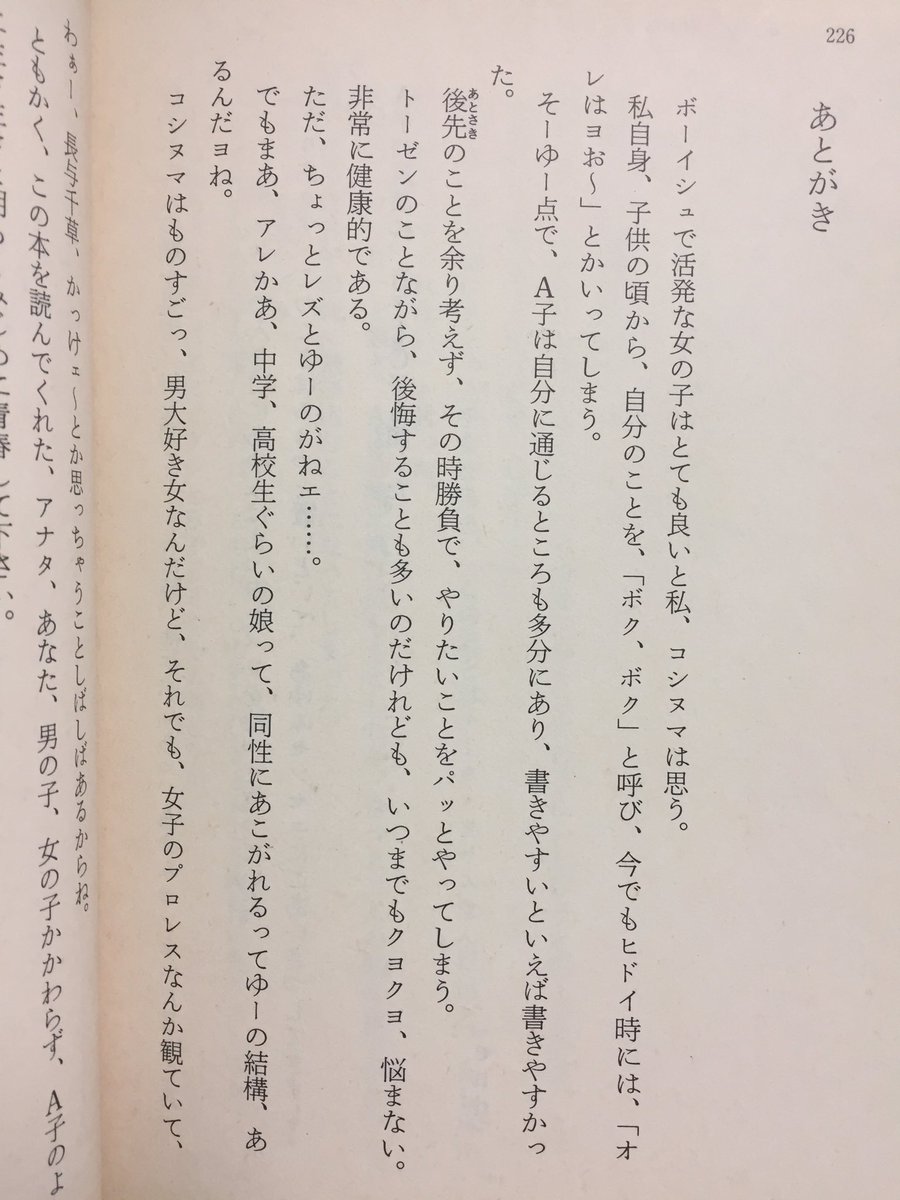 226
あとがき
ボーイシュで活発な女の子はとても良いと私、コシヌマは思う。
私自身、子供の頃から、自分のことを、「ボク、ボク」と呼び、今でもヒドイ時には、「オ
レはヨお〜」とかいってしまう。
そーゆー点で、A子は自分に通じるところも多分にあり、書きやすいといえば書きやすかっ
た。
後先のことを余り考えず、その時勝負で、やりたいことをパッとやってしまう。
あとさき
トーゼンのことながら、後悔することも多いのだけれども、いつまでもクヨクヨ、悩まない。
非常に健康的である。
ただ、ちょっとレズとゆーのがねエ……。
でもまあ、アレかあ、中学、高校生ぐらいの娘って、同性にあこがれるってゆーの結構、あ
るんだヨね。
コシヌマはものすごっ、男大好き女なんだけど、それでも、女子のプロレスなんか観ていて、
わぁー、長与千草、かっけェ〜とか思っちゃうことしばしばあるからね。
ともかく、この本を読んでくれた、アナタ、あなた、男の子、女の子かかわらず、A子のよ
青春して下さい。